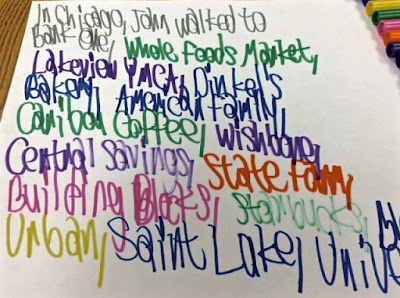 In Chicago, John walked to
Bank One, Whole Foods Market,
Lakeview YMCA, Dinkel's
Bakery, American Family,
Caribou Coffee, Wishbone,
Central Savings, State Farm,
Building Blocks, Starbucks,
Urban, Saint Luke, Univ